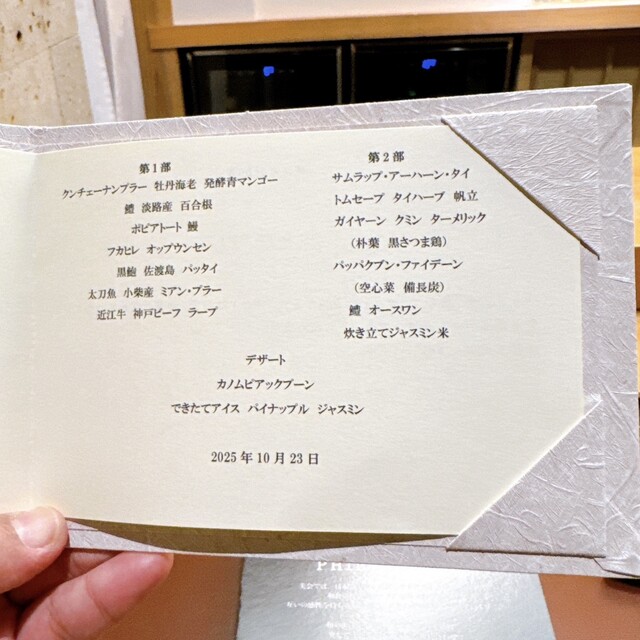 第1部
クンチェーナンプラー 牡丹海老 発酵青マンゴー
鱧 淡路産 百合根
ポピアトート 鰻
フカヒレ オップウンセン
黒鮑 佐渡島 パッタイ
太刀魚 小柴産 ミアン・プラー
近江牛 神戸ビーフ ラープ
第2部
サムラップ・アーハーン・タイ
トムセープ タイハーブ 帆立
ガイヤーン クミン ターメリック
(朴葉 黒さつま鶏)
パッパクブン・ファイデーン
(空心菜 備長炭)
鱧 オースワン
炊き立てジャスミン米
デザート
カノムピアックプーン
できたてアイス パイナップル ジャスミン
2025年10月23日